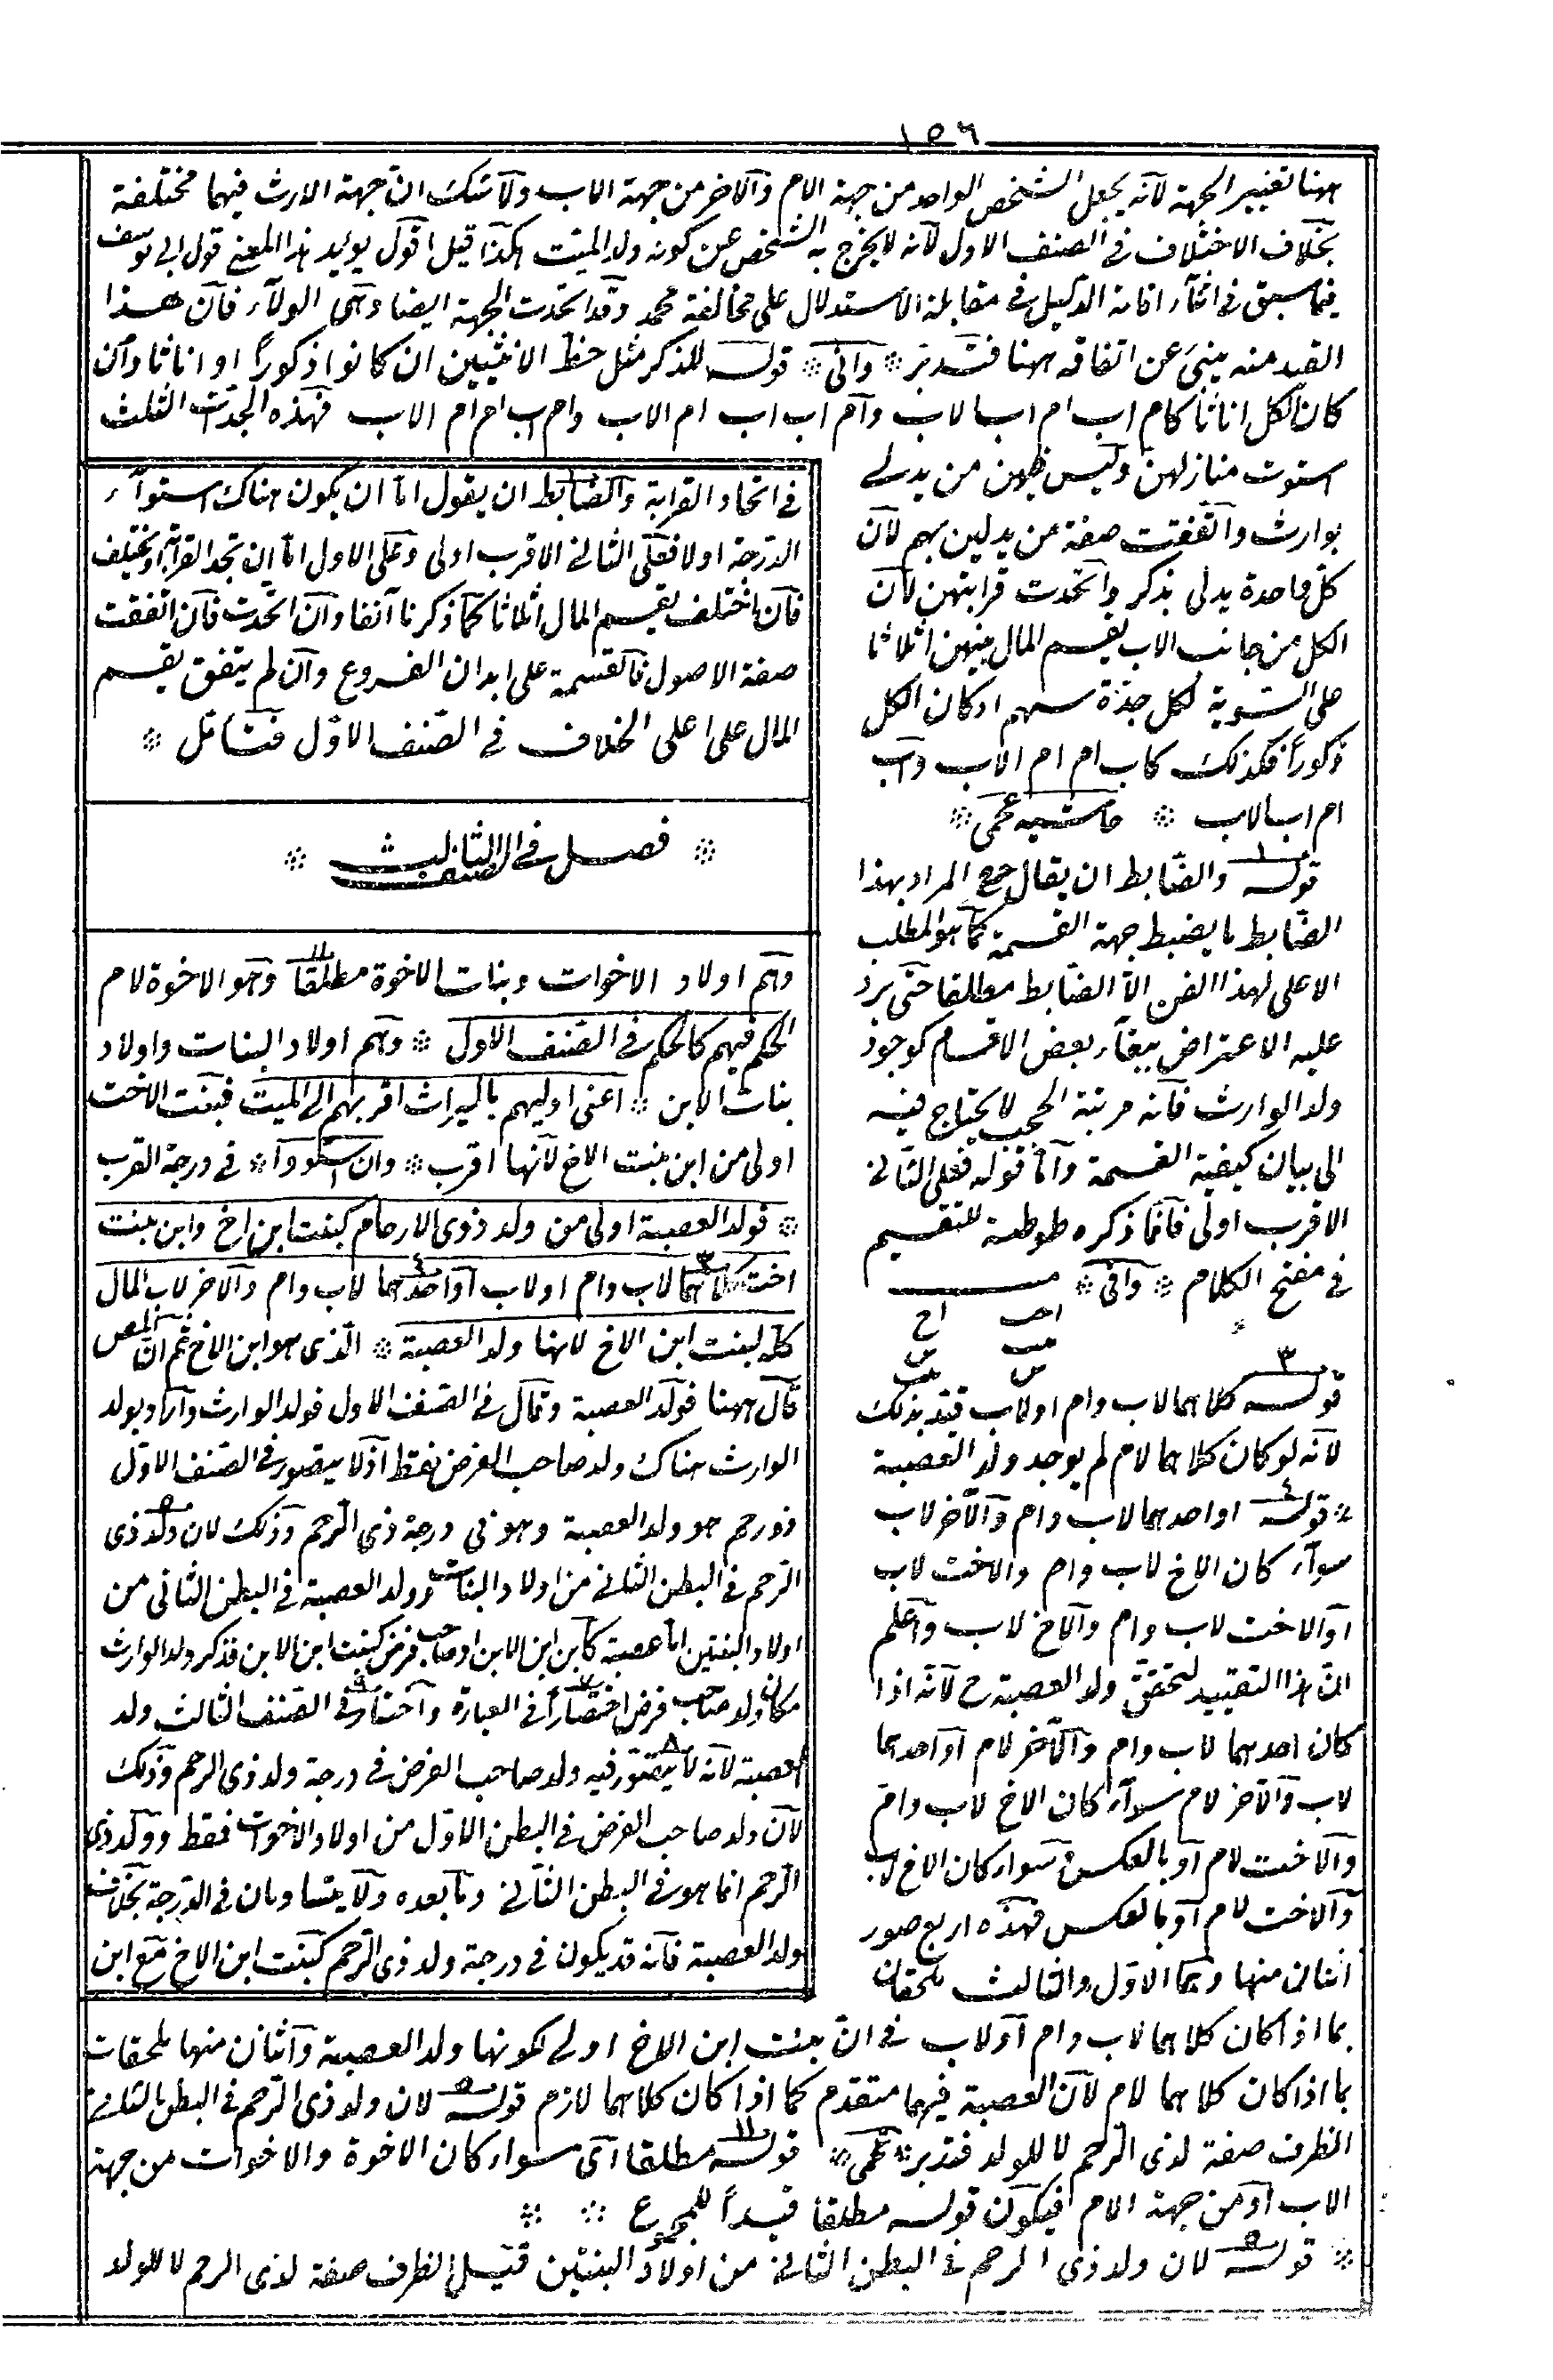 ١٥٦
ههنا تغيير الجهة لانه يجعل الشخص الواحد من جهة الام والآخر من جهة الاب ولا شك ان جهة الارث فيهما مختلفة
بخلاف الاختلاف في الصنف الاول لانه لا يخرج به الشخص عن كونه ولد الميت هكذا قيل اقول يؤيد هذا المعنى قول ابي يوسف
فيما سبق في اثناء اقامة الدليل في مقابلة الاستدلال على مخالفة محمد وقد اتحدت الجهة ايضا وهي الولاء فان هذا
القيد منه ينبئ عن اتفاقه ههنا فتدبر * وافي * قوله للذكر مثل حظ الانثيين ان كانوا ذكورا او اناثا وان
كان الكل اناثا كام اب ام اب الاب وام اب اب ام الاب وام اب ام ام الاب فهذه الجدات الثلث
استوت منازلهن وليس فيهن من يدلي
بوارث واتفقت صفة من يدلين بهم لان
كل واحدة يدلى بذكر واتحدت قرابتهن لان
الكل من جانب الاب يقسم المال بينهن اثلاثا
على السوية لكل جدة سهم او كان الكل
ذكورا فكذلك كاب ام ام الاب واب
ام اب الاب * حاشيه عجمى *
١ قوله والضابط ان يقال ح المراد بهذا
الضابط ما يضبط جهة القسمة كما هو المطلب
الاعلى لهذا الفن لا الضابط مطلقا حتى يرد
عليه الاعتراض ببقاء بعض الاقسام كوجود
ولد الوارث فانه مرتبة الحجب لا يحتاج فيه
الى بيان كيفية القسمة واما قوله فعلى الثاني
الاقرب اولى فانما ذكره طوطئة للتقسيم
في مفتح الكلام * وافي *
٣ قوله كلاهما لاب وام اولاب قيد بذلك
لانه لو كان كلاهما لام لم يوجد ولد العصبة
* ٤ قوله او احدهما لاب وام والآخر لاب
سواء كان الاخ لاب وام والاخت لاب
او الاخت لاب وام والاخ لاب واعلم
ان هذا التقييد ليتحقق ولد العصبة ح لانه اذا
كان احدهما لاب وام والآخر لام او احدهما
لاب والآخر لام سواء كان الاخ لاب وام
والاخت لام او بالعكس وسواء كان الاخ لاب
والاخت لام او بالعكس فهذه اربع صور
اثنان منها وهما الاول والثالث ملحقان
في اتحاد القرابة والضابط ان يقول اما ان يكون هناك استواء
الدرجة اولا فعلى الثاني الاقرب اولى وعلى الاول اما ان يتحد القرابة او يختلف
فان اختلف يقسم المال اثلاثا كما ذكرنا آنفا وان اتحدت فان اتفقت
صفة الاصول فالقسمة على ابدان الفروع وان لم يتفق يقسم
المال على اعلى الخلاف في الصنف الاول فتأمل *
* فصل في الصنف الثالث *
وهم اولاد الاخوات وبنات الاخوة مطلقا ١١ وبنو الاخوة لام
الحكم فيهم كالحكم في الصنف الاول * وهم اولاد البنات واولاد
بنات الابن * اعني اوليهم بالميراث اقربهم الى الميت فبنت الاخت
اولى من ابن بنت الاخ لانها اقرب * وان استووا * في درجة القرب
* فولد العصبة اولى من ولد ذوى الارحام كبنت ابن اخ وابن بنت
اخت ٣ كلاهما لاب وام او لاب ٤ او احدهما لاب وام والآخر لاب المال
كله لبنت ابن الاخ لانها ولد العصبة * الذي هو ابن الاخ ثم ان المص
قال ههنا فولد العصبة وقال في الصنف الاول فولد الوارث واراد بولد
الوارث هناك ولد صاحب الفرض فقط اذ لا يتصور في الصنف الاول
ذو رحم هو ولد العصبة وهو في درجة ذي الرحم وذلك لان ٥ ولد ذى
الرحم في البطن الثاني من اولاد البنات وولد العصبة في البطن الثاني من
اولاد البنتين اما عصبة كابن ابن الابن او صاحب فرض كبنت ابن الابن فذكر ولد الوارث
مكان ولد صاحب فرض ٧ اختصارا في العبارة ٩ واختار في الصنف الثالث ولد
العصبة لانه لا ٨ يتصور فيه ولد صاحب الفرض في درجة ولد ذى الرحم وذلك
لان ولد صاحب الفرض في البطن الاول من اولاد الاخوات فقط وولد ذى
الرحم انما هو في البطن الثاني وما بعده ولا يتساويان في الدرجة بخلاف
ولد العصبة فانه قد يكون في درجة ولد ذى الرحم كبنت ابن الاخ مع ابن
بما اذا كان كلاهما لاب وام او لاب في ان بنت ابن الاخ اولى لكونها ولد العصبة واثنان منها ملحقات
بما اذا كان كلاهما لام لان العصبة فيهما متقدم كما اذا كان كلاهما لازم ٥ قوله لان ولد ذى الرحم في البطن الثاني
الظرف صفة لذى الرحم لا للولد فتدبر * عجمى * ١١ قوله مطلقا اى سواء كان الاخوة والاخوات من جهة
الاب او من جهة الام فيكون قوله مطلقا قيدا للمجموع * *
* ٥ قوله لان ولد ذى الرحم في البطن الثاني من اولاد البنتين قيل الظرف صفة لذى الرحم لا للولد